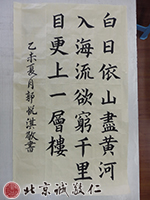 白日依山盡黄河
入海流欲窮千里
目更上一層樓
乙未夏月郭悦淇敬書
北京誠敬仁